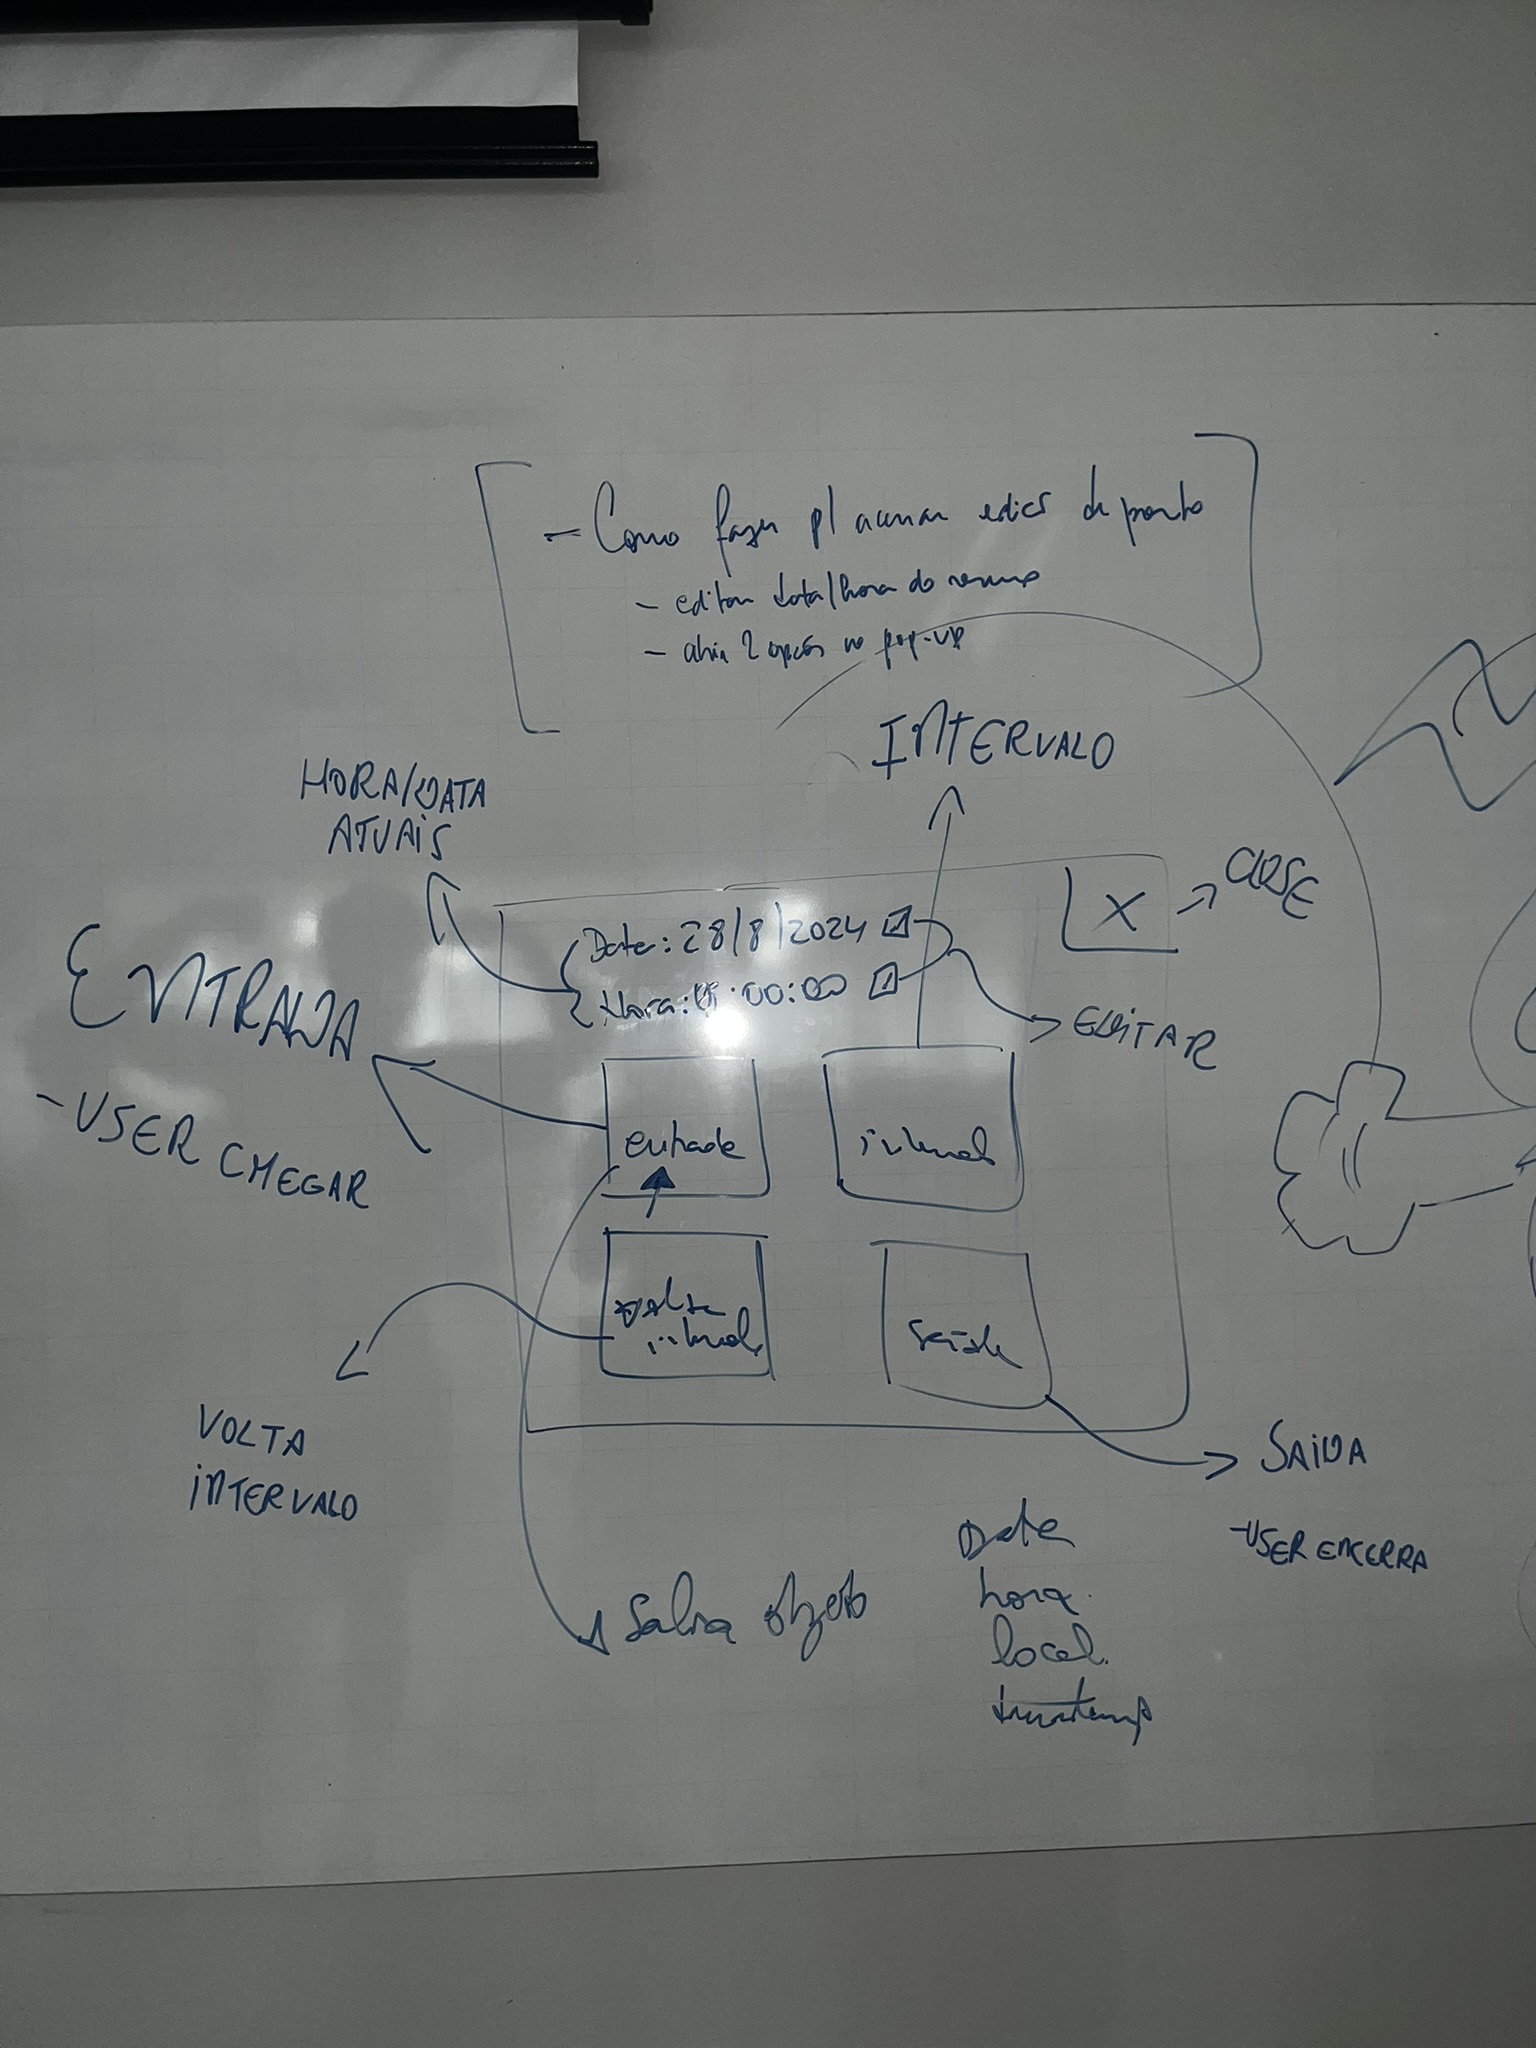 - Como fazer p/ acionar edics de ponto
- editar data/hora do mesmo
- abrir 2 opções no pop-up
INTERVALO
HORA/DATA
ATUAIS
CLOSE
X
Data: 28/8/2024
Hora: :00:00
EDITAR
ENTRADA
- USER CHEGAR
entrada
intervalo
volta
intervalo
saída
VOLTA
INTERVALO
SAIDA
- USER ENCERRA
Salva objeto
Data
hora
local
timestamp